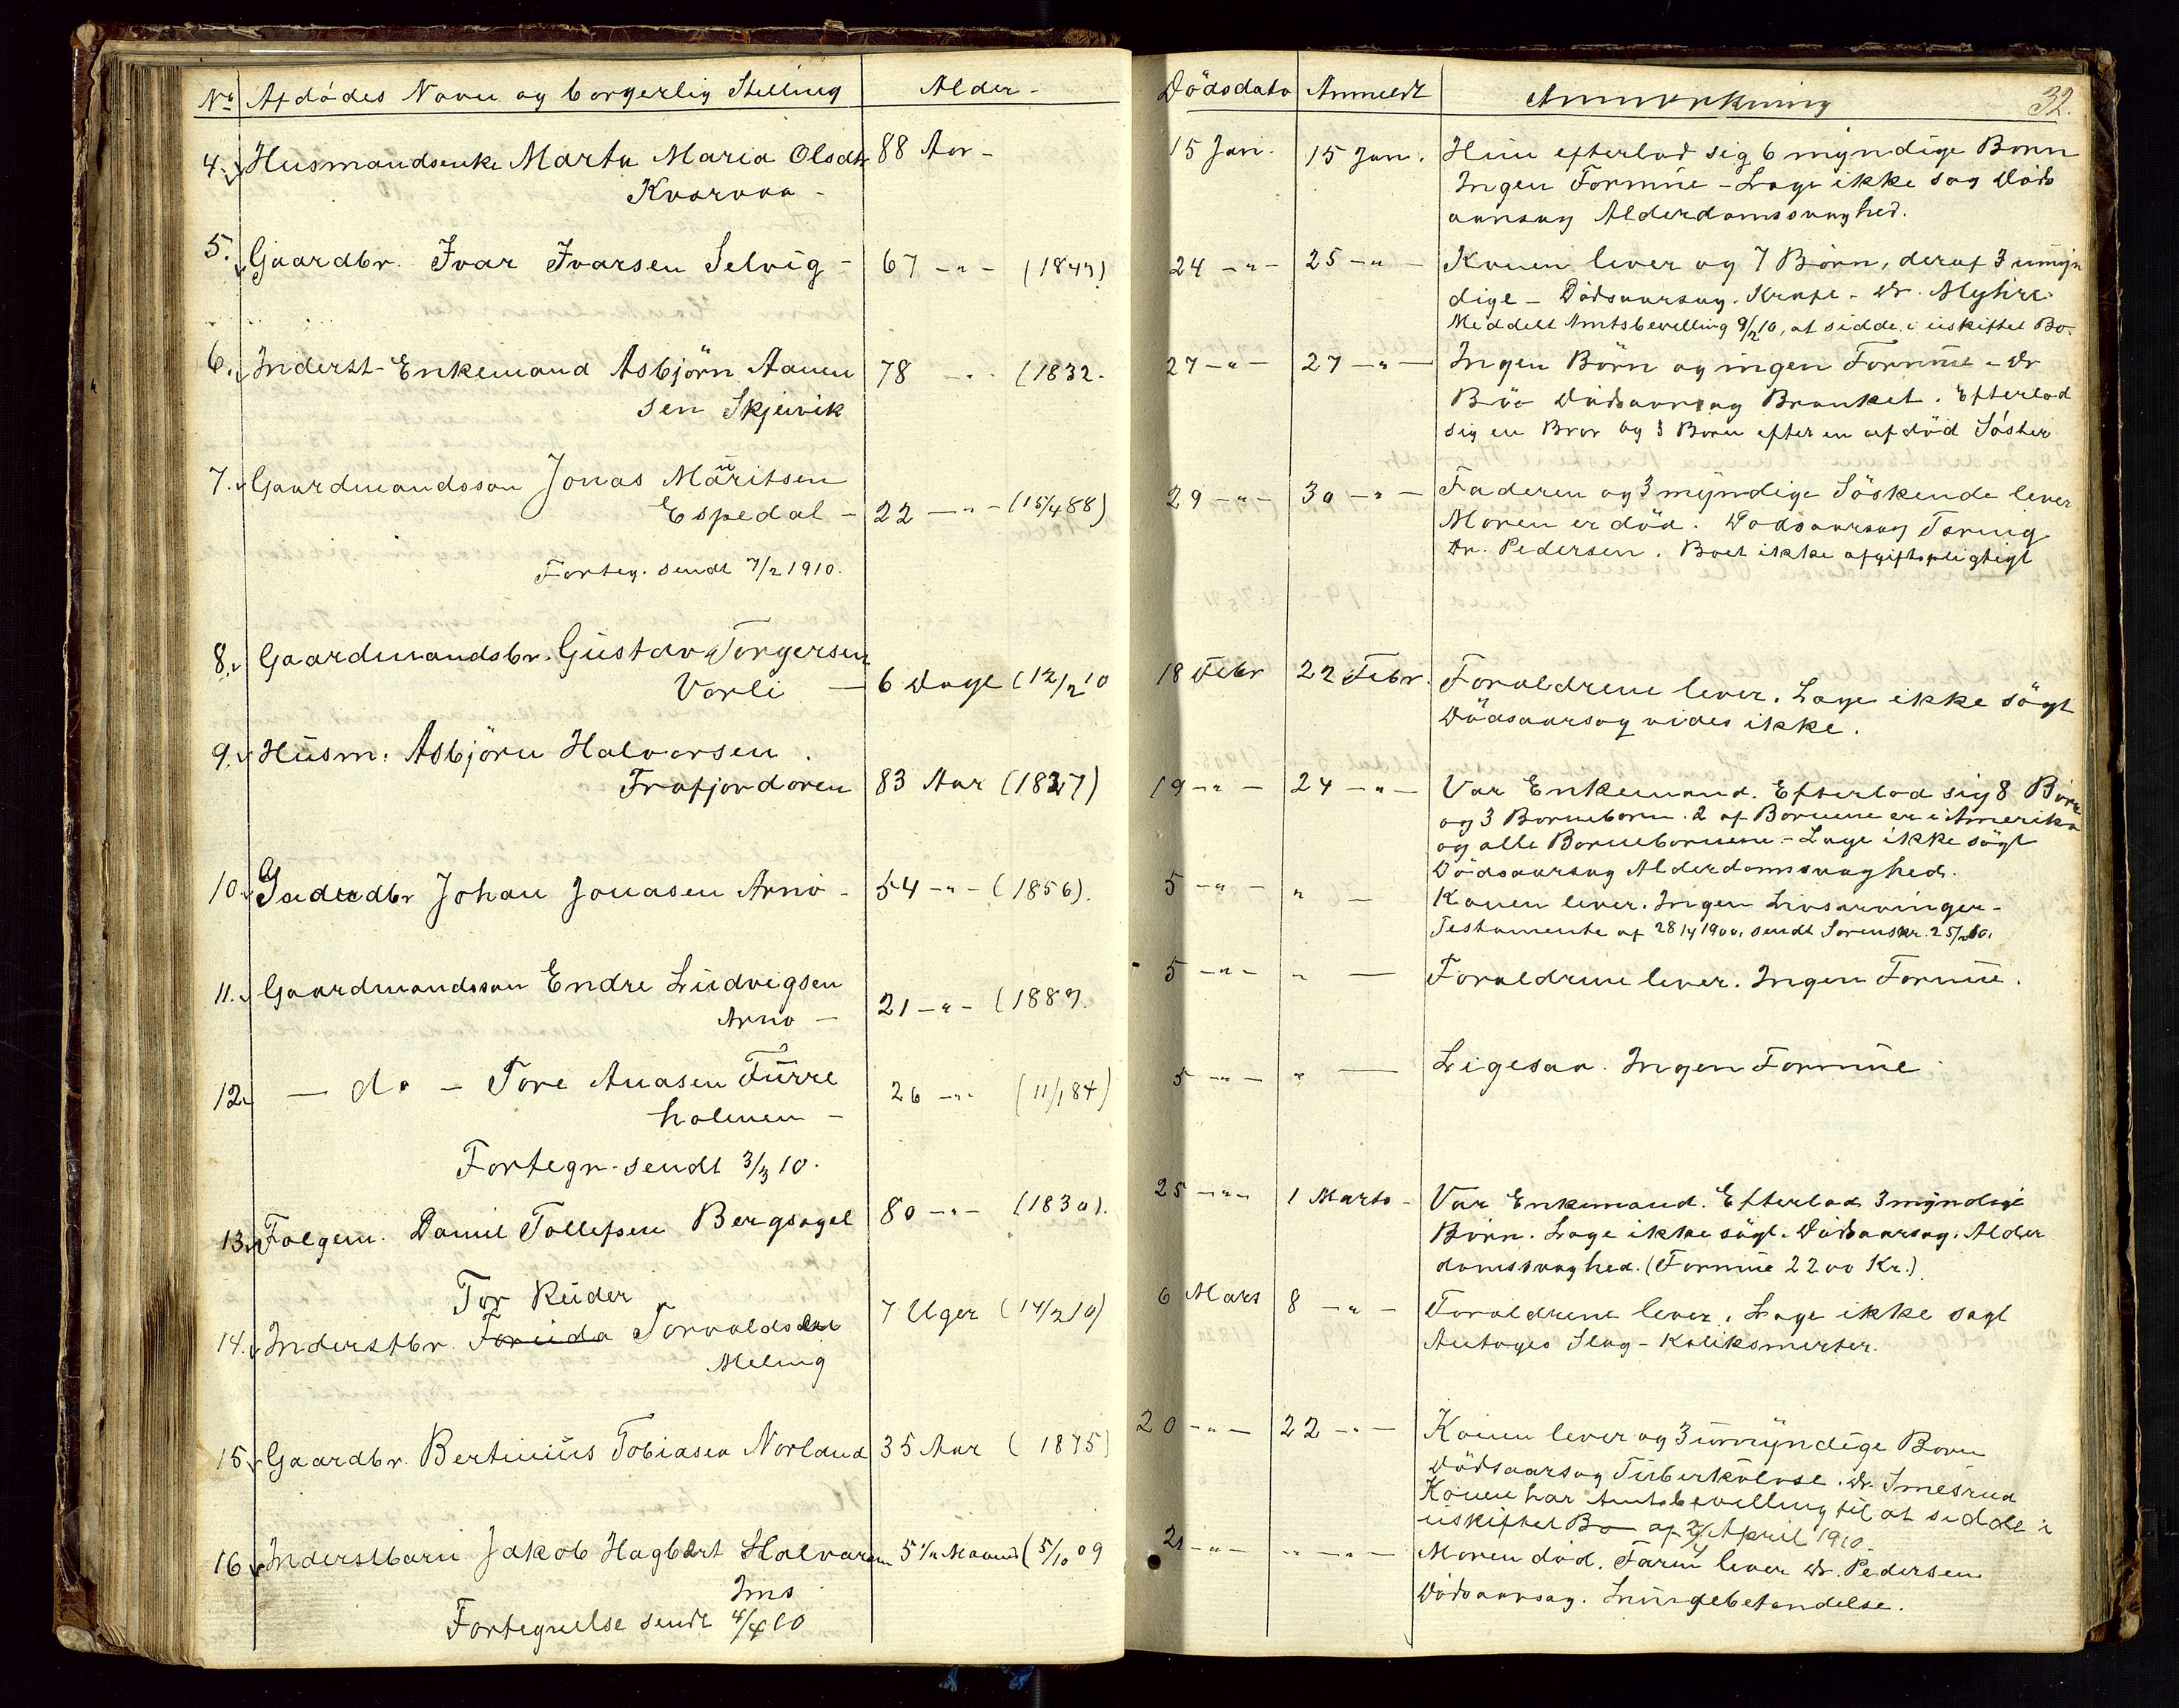 No Afdødes Navn og borgerlig Stilling
Alder -
4. Husmandsenke Marta Maria Olsdtr
88 Aar -
Kvarvaa -
5. Gaardbr. Ivar Ivarsen Selvig -
67 -"- (1843)
6. Inderst-Enkemand Asbjörn Aanen
78 -"- (1832.
sen Skjeivik
7. Gaardmandssøn Jonas Mauritsen
Espedal -
22 -"- (15/4 88)
Forteg. sendt 7/2 1910.
8. Gaardmandsbr. Gustav Torgersen
Varli -
6 Dage (12/2 10
9. Husm. Asbjörn Halvorsen.
Frafjordøren
83 Aar (1827)
10. Gaardbr Johan Jonasen Arnø -
54 -"- (1856).
11. Gaardmandssøn Endre Ludvigsen
Arnø -
21 -"- (1889.
12. - do - Tore Auasen Furre
holmen -
26 -"- (11/1 84)
Fortegn. sendt 3/3 10.
13. Følgem. Daniel Tollefsen Bergsagel
80 -"- (1830).
Tor Reider
14. Inderstbr. Toreida Torvalds
7 Uger (14/2 10)
Meling
15. Gaardbr. Bertinius Tobiasen Norland
35 Aar (1875)
16 Inderstbarn Jakob Hagbart Halvorsen
5 1/2 Maaned (5/10 09
Ims
Fortegnelse sendt 4/4 10
Dödsdato
Anmeldt
Anmærkning
32.
15 Jan.
15 Jan.
Hun efterlod sig 6 myndige Børn
Ingen Formue - Læge ikke søg Døds
aarsag Alderdomssvaghed.
24 -"-
25 -"-
Konen lever og 7 Børn, deraf 3 umyn
dige - Dödsaarsag. Kræft - Dr. Myhre.
Meddelt Amtsbevilling 9/2 10, at sidde i uskiftet Bo.
27 -"-
27 -"-
Ingen Börn og ingen Formue - Dr
Böe Dødsaarsag Bronket. Efterlod
sig en Bror og 3 Børn efter en afdöd Söster
29 -"-
30 -"-
Faderen og 3 myndige Söskende lever
Moren er död. Dødsaarsag Tæring
Dr. Pedersen. Boet ikke afgiftspligtigt
18 Febr
22 Febr.
Forældrene lever. Læge ikke sögt
Dödsaarsag vides ikke.
19 -"-
24 -"-
Var Enkemand. Efterlod sig 8 Börn
og 3 Børnebørn. 2 af Børnene er i Amerika
og alle Børnebørnene - Læge ikke sögt
Dödsaarsag Alderdomssvaghed.
5 -"-
" -
Konen lever. Ingen Livsarvinger -
Testamente af 28/4 1900, sendt Sorenskr. 25/2 10.
5 -"-
" -
Forældrene lever. Ingen Formue.
5 -"-
" -
Ligesaa. Ingen Formue
25 -"-
1 Marts -
Var Enkemand. Efterlod 3 myndige
Börn. Læge ikke sögt. Dødsaarsag. Alder
domssvaghed. (Formue 2200 Kr.)
6 Mars
8 -"-
Forældrene lever. Læge ikke søgt
Antages Slag - Koliksmerter.
20 -"-
22 -"-
Konen lever og 3 umyndige Børn
Dödsaarsag Tuberkulose. Dr. Smesrud
Konen har Amtsbevilling til at sidde i
uskiftet Bo af 2/4 April 1910.
21 -"-
-"-
Moren död. Faren lever Dr. Pedersen
Dødsaarsag. Lungebetændelse.